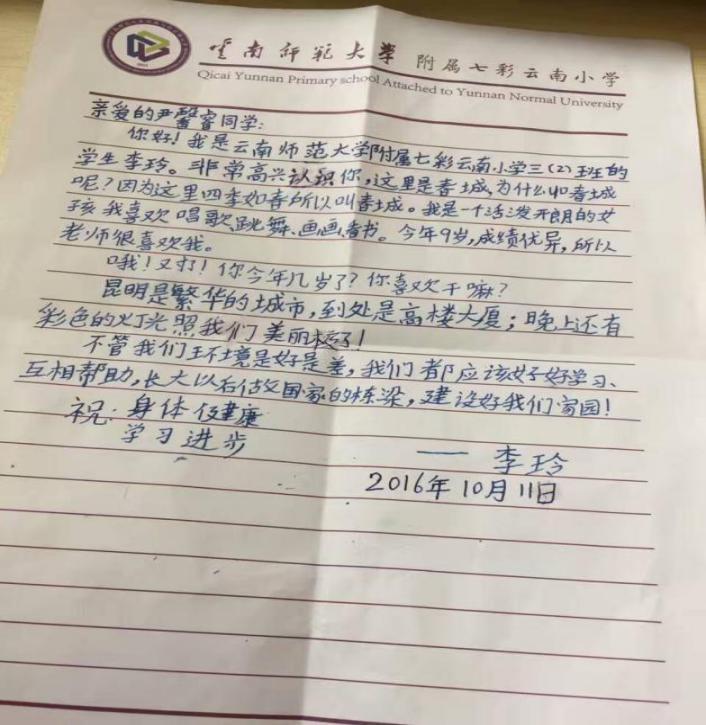 云南师范大学 附属七彩云南小学
Qicai Yunnan Primary school Attached to Yunnan Normal University
亲爱的尹馨睿同学:
你好!我是云南师范大学附属七彩云南小学三(2)班的
学生李玲。非常高兴认识你,这里是春城为什么叫春城
呢?因为这里四季如春所以叫春城。我是一个活泼开朗的女
孩我喜欢唱歌、跳舞、画画、看书。今年9岁,成绩优异,所以
老师很喜欢我。
哦!对了!你今年几岁了?你喜欢干嘛?
昆明是繁华的城市,到处是高楼大厦;晚上还有
彩色的灯光照我们美丽极了!
不管我们环境是好是差,我们都应该好好学习、
互相帮助,长大以后做国家的栋梁,建设好我们家园!
祝:身体健康
学习进步
——李玲
2016年10月11日